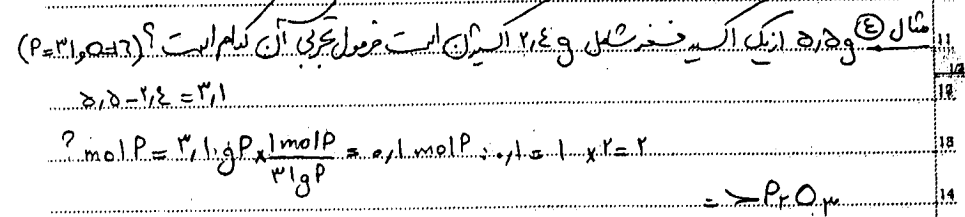 مثال ٤) ۵٫۵g از یک اکسید فسفر شامل ۲٫٤g اکسیژن است فرمول تجربی آن کدام است؟ (P=۳۱,O=16)
11
12
۵٫۵-۲٫٤=۳٫۱
12
? mol P = ۳٫۱ g P × 1 mol P / ۳۱ g P = ۰٫۱ mol P ÷ ۰٫۱ = ۱ × ۲ = ۲
13
=> P۲O۳
14